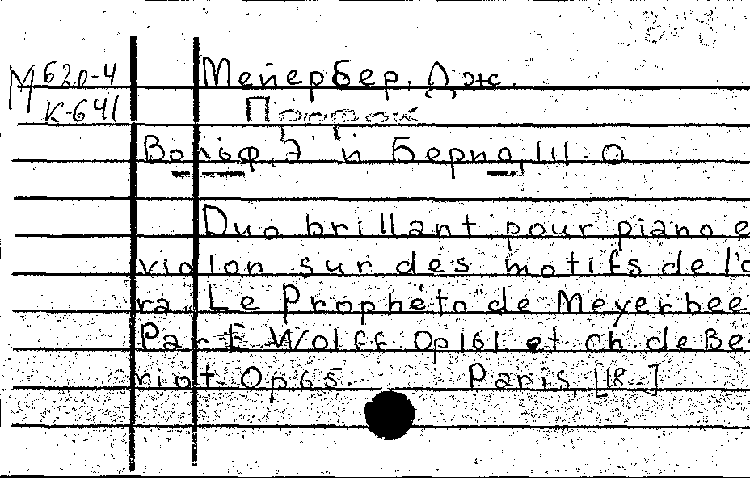 М 620-4
К-641
Мейербер, Дж.
Пророк
Вольф, Э и Берио, Ш. О
Duo brillant pour piano e
violon sur des motifs de l'o
ra „Le Prophéto" de Meyerbee
Par E Wolff. Op161 et ch. de Be-
riot. Op65. Paris, [18 ]